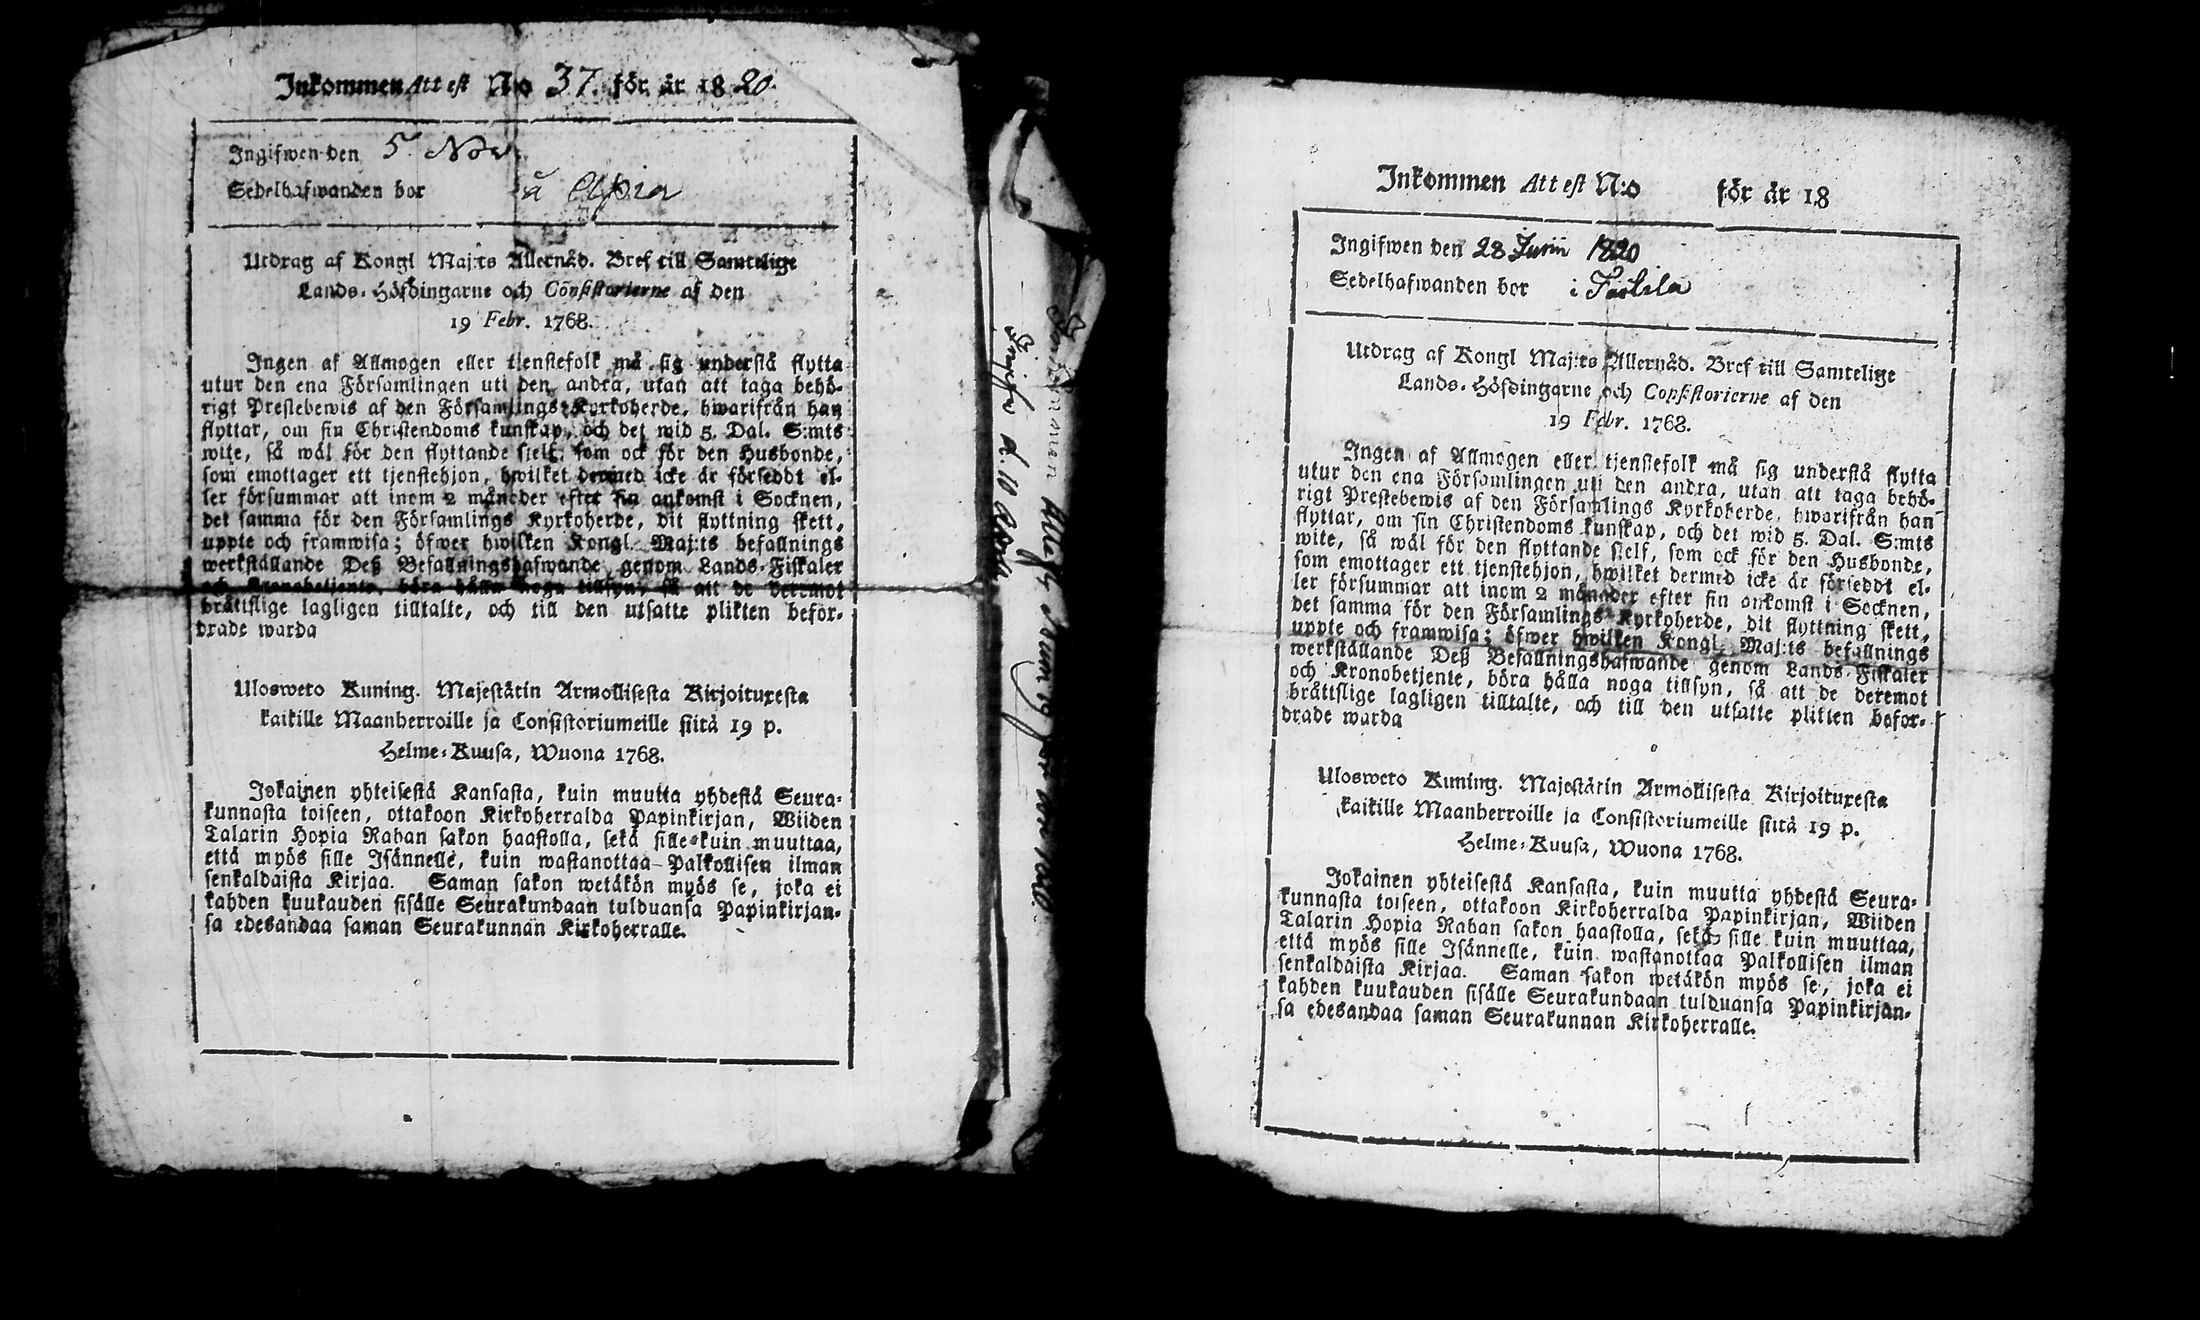 Inkommen Attest No 37. för år 1820.
Ingifwen den 5. Nov.
Sedelhafwanden bor å
Utdrag af Kongl Maj:ts Allernåd. Bref till Samtelige
Lands-Höfdingarne och Consistorierne af den
19 Febr. 1768.
Ingen af Allmogen eller tienstefolk må sig understå flytta
utur den ena Församlingen uti den andra, utan att taga behö-
rigt Prestebewis af den Församlings Kyrkoherde, hwarifrån han
flyttar, om sin Christendoms kunskap, och det wid 5. Dal. S:mts
wite, så wäl för den flyttande sielf, som ock för den Husbonde,
som emottager ett tjenstehjon, hwilket dermed icke är försedt el-
ler försummar att inom 2 månader efter sin ankomst i Socknen,
det samma för den Församlings Kyrkoherde, dit flyttning skett,
uppte och framwisa; öfwer hwilken Kongl. Maj:ts befallnings
werkställande Deß Befallningshafwande genom Lands-Fiskaler
och Kronobetjente, böra hålla noga tillsyn, så att de deremot
bråttslige lagligen tilltalte, och till den utsatte plikten befor-
drade warda
Ulosweto Kuning. Majestätin Armollisesta Kirjoituxesta
kaikille Maanherroille ja Consistoriumeille siitä 19 p.
Helme-Kuusa, Wuona 1768.
Jokainen yhteisestä Kansasta, kuin muutta yhdestä Seura-
kunnasta toiseen, ottakoon Kirkoherralda Papinkirjan, Wiiden
Talarin Hopia Rahan sakon haastolla, sekä sille kuin muuttaa,
että myös sille Isännelle, kuin wastanottaa Palkollisen ilman
senkaldaista Kirjaa. Saman sakon wetäkön myös se, joka ei
kahden kuukauden sisälle Seurakundaan tulduansa Papinkirjan-
sa edesandaa saman Seurakunnan Kirkoherralle.
Inkommen Attest N:o för år 18
Ingifwen den 28 Junii 1820
Sedelhafwanden bor i
Utdrag af Kongl Maj:ts Allernåd. Bref till Samtelige
Lands-Höfdingarne och Consistorierne af den
19 Febr. 1768.
Ingen af Allmogen eller tjenstefolk må sig understå flytta
utur den ena Församlingen uti den andra, utan att taga behö-
rigt Prestebewis af den Församlings Kyrkoherde, hwarifrån han
flyttar, om sin Christendoms kunskap, och det wid 5. Dal. S:mts
wite, så wäl för den flyttande sielf, som ock för den Husbonde,
som emottager ett tjenstehjon, hwilket dermed icke är försedt el-
ler försummar att inom 2 månader efter sin ankomst i Socknen,
det samma för den Församlings Kyrkoherde, dit flyttning skett,
uppte och framwisa; öfwer hwilken Kongl. Maj:ts befallnings
werkställande Deß Befallningshafwande genom Lands-Fiskaler
och Kronobetjente, böra hålla noga tillsyn, så att de deremot
bråttslige lagligen tilltalte, och till den utsatte plikten befor-
drade warda
Ulosweto Kuning. Majestätin Armollisesta Kirjoituxesta
kaikille Maanherroille ja Consistoriumeille siitä 19 p.
Helme-Kuusa, Wuona 1768.
Jokainen yhteisestä Kansasta, kuin muutta yhdestä Seura-
kunnasta toiseen, ottakoon Kirkoherralda Papinkirjan, Wiiden
Talarin Hopia Rahan sakon haastolla, sekä sille kuin muuttaa,
että myös sille Isännelle, kuin wastanottaa Palkollisen ilman
senkaldaista Kirjaa. Saman sakon wetäkön myös se, joka ei
kahden kuukauden sisälle Seurakundaan tulduansa Papinkirjan-
sa edesandaa saman Seurakunnan Kirkoherralle.